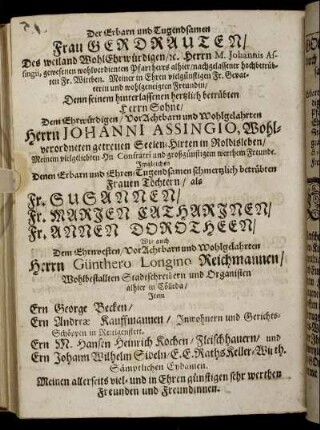 Der Erbarn und Tugendsamen
Frau GERDRAUTEN/
Des weiland WohlEhrwürdigen/ꝛc. Herrn M. Johannis As-
singii, gewesenen wohlverdienten Pfarrherrs alhier/nachgelassener hochbetrüb-
ten Fr. Witben. Meiner in Ehren vielgünstigen Fr. Gevat-
terin und wohlgeneigten Freundin/
Denn seinem hinterlassenen hertzlich betrübten
Herrn Sohne/
Dem Ehrwürdigen/VorAchtbarn und Wohlgelahrten
Herrn JOHANNI ASSINGIO, Wohl-
verordneten getreuen Seelen-Hirten in Roldisleben/
Meinem vielgeliebten Hn Confratri und großgünstigem werthem Freunde.
Ingleichen
Denen Erbarn und Ehren-Tugendsamen schmertzlich betrübten
Frauen Töchtern/ als
Fr. SUSANNEN/
Fr. MARIEN CATHARINEN/
Fr. ANNEN DOROTHEEN/
Wie auch
Dem Ehrnvesten/VorAchtbarn und Wohlgelahrten
Herrn Günthero Longino Reichmannen/
Wohlbestallten Stadtschreibern und Organisten
alhier in Cölleda/
Item
Ern George Becken/
Ern Andreæ Kauffmannen/ Inwohnern und Gerichts-
Schöppen in
Ern M. Hansen Heinrich Kochen/Fleischhauern/ und
Ern Johann Wilhelm Sideln/E.E.Raths Keller-Wirth.
Sämptlichen Eydamen.
Meinen allerseits viel- und in Ehren günstigen sehr werthen
Freunden und Freundinnen.